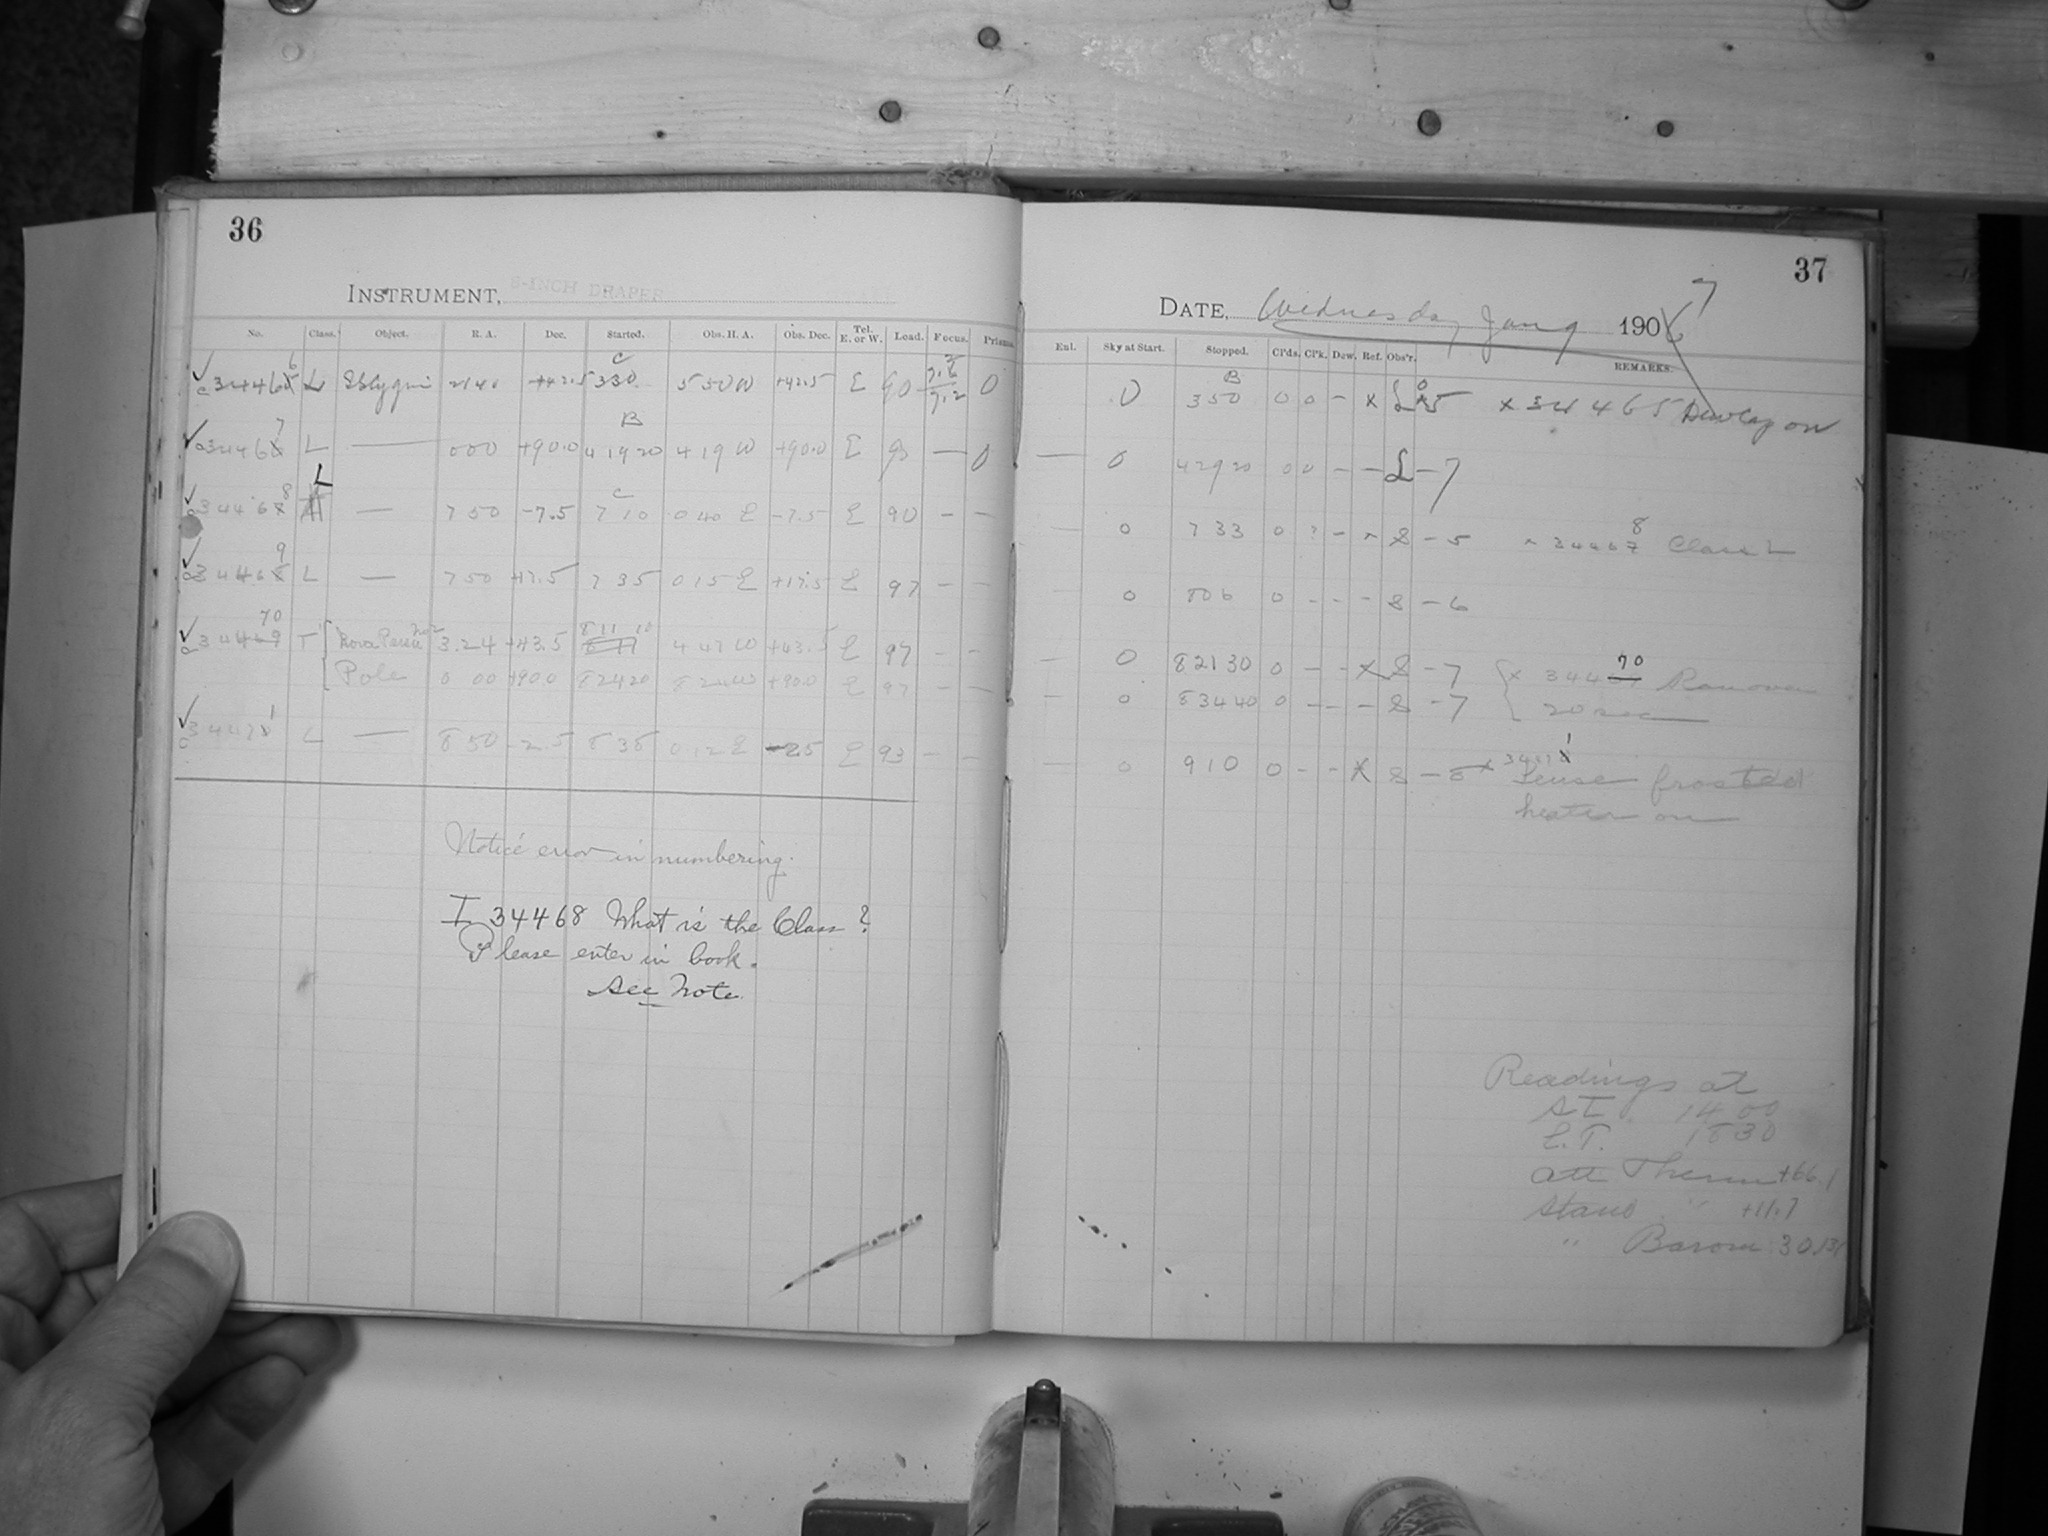 36
INSTRUMENT, 8-INCH DRAPER
No. Class. Object. R. A. Dec. Started. Obs. H. A. Obs. Dec. Tel. E. or W. Load. Focus. Prisms.
6 C 7.2
34465 L SS Cygni 2140 +42.5 330 530 W +42.5 E 90 7.2 0
7 B
34466 L — 000 +90.0 41920 419 W +90.0 E 90 — 0
8 L C
34467 — 750 -7.5 710 040 E -7.5 E 90 - -
9
34468 L — 750 +17.5 735 015 E +17.5 E 97 - -
70 8 11 10
34469 T Nova Persei No 2 3.24 +43.5 8 11 447 W +43.5 E 97 - -
Pole 0 00 +90.0 82420 824 W +90.0 E 97 - -
1
34470 L — 850 -2.5 838 012 E -2.5 E 93 - -
Notice error in numbering.
I 34468 What is the Class?
Please enter in book.
See Note.
37
DATE, Wednesday Jan 9 1906 7
Enl. Sky at Start. Stopped. Cl'ds. Cl'k. Dew. Ref. Obs'r. REMARKS.
B
0 350 0 0 - x L 5 x 34465 Dewcap on
— 0 42920 0 0 - - L - 7
8
— 0 733 0 ? - x S - 5 x 34467 Class L
— 0 806 0 - - - S - 6
70
— 0 82130 0 - - x S - 7 x 344 Ran over
— 0 83440 0 - - - S - 7 20 sec
1
— 0 910 0 - - x S - 8 x 34470
Lense frosted
heater on
Readings at
S.T. 14 00
E.T. 1830
Att Therm +66.1
Stand " +11.7
" Barom 30.